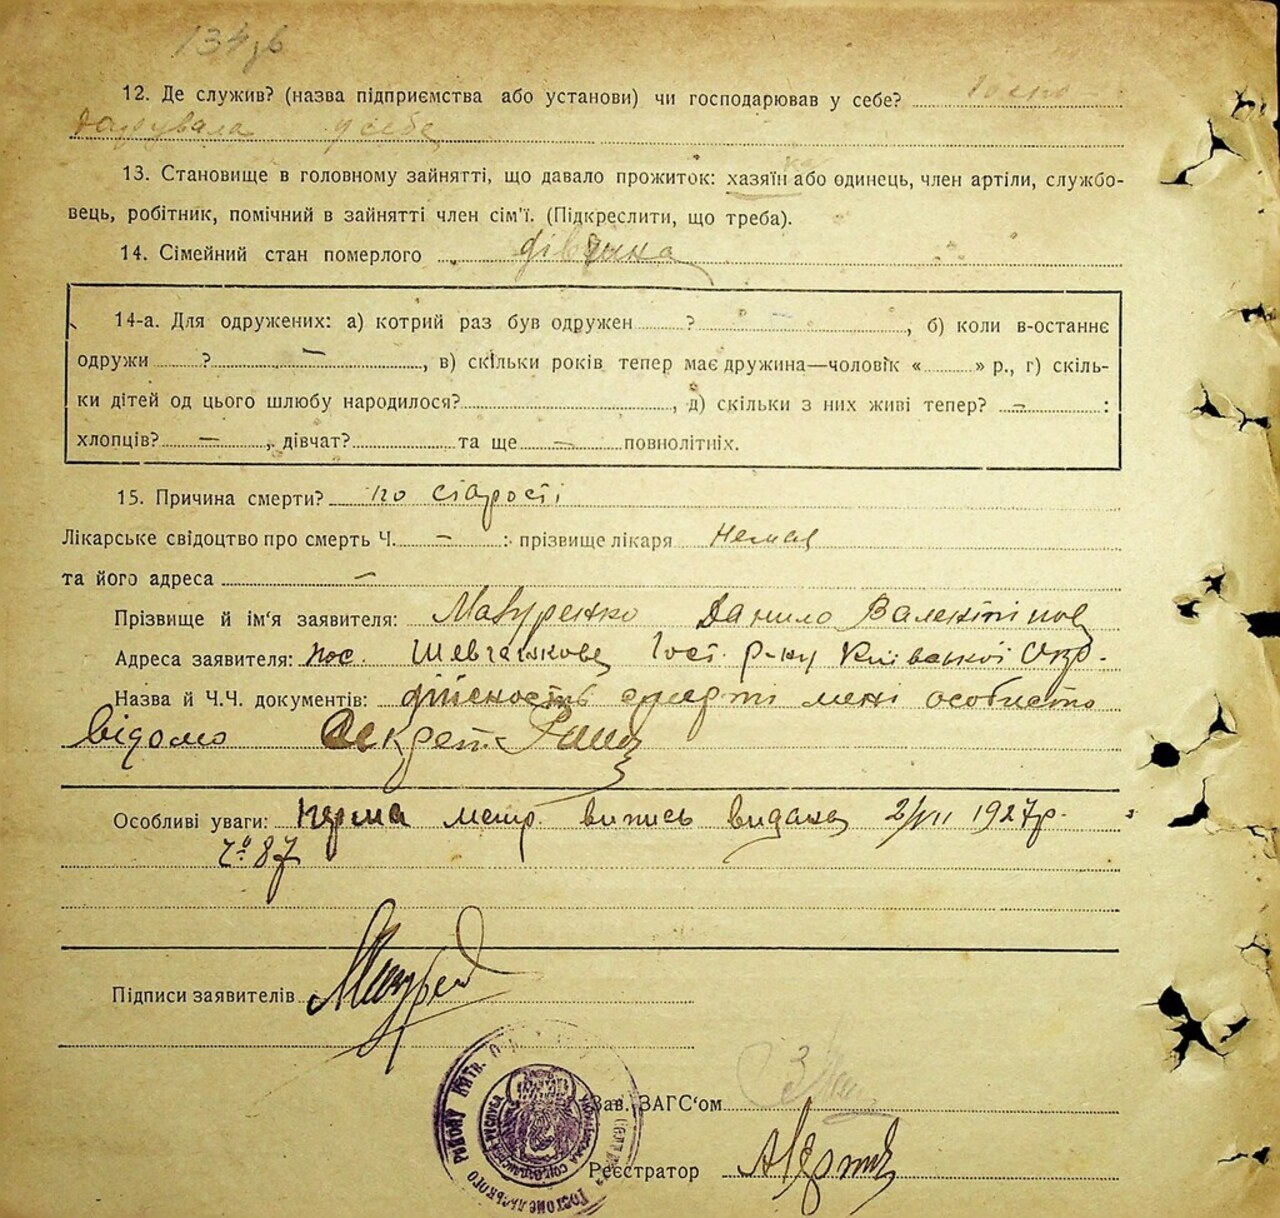 134
12. Де служив? (назва підприємства або установи) чи господарював у себе? Госпо
дарувала у себе
13. Становище в головному зайнятті, що давало прожиток: хазяїнка або одинець, член артіли, службо-
вець, робітник, помічний в зайнятті член сім'ї. (Підкреслити, що треба).
14. Сімейний стан померлого дівчина
14-а. Для одружених: а) котрий раз був одружен ? —, б) коли в-останнє
одружи ? —, в) скільки років тепер має дружина—чоловік « » р., г) скіль-
ки дітей од цього шлюбу народилося? , д) скільки з них живі тепер? — :
хлопців? —, дівчат? та ще — повнолітніх.
15. Причина смерти? по старості
Лікарське свідоцтво про смерть Ч. — : прізвище лікаря Немає
та його адреса —
Прізвище й ім'я заявителя: Мазуренко Данило Валентінов
Адреса заявителя: пос. Шевченкове Гост. р-ну Київської Окр.
Назва й Ч.Ч. документів: дійсность смерті мені особисто
відомо Секрет.
Особливі уваги: Перша метр. випись видана 2/VII 1927р.
Ч° 87
Підписи заявителів Мазурен
Зав. ЗАГС'ом
Реєстратор
Гостомельського району Київ.